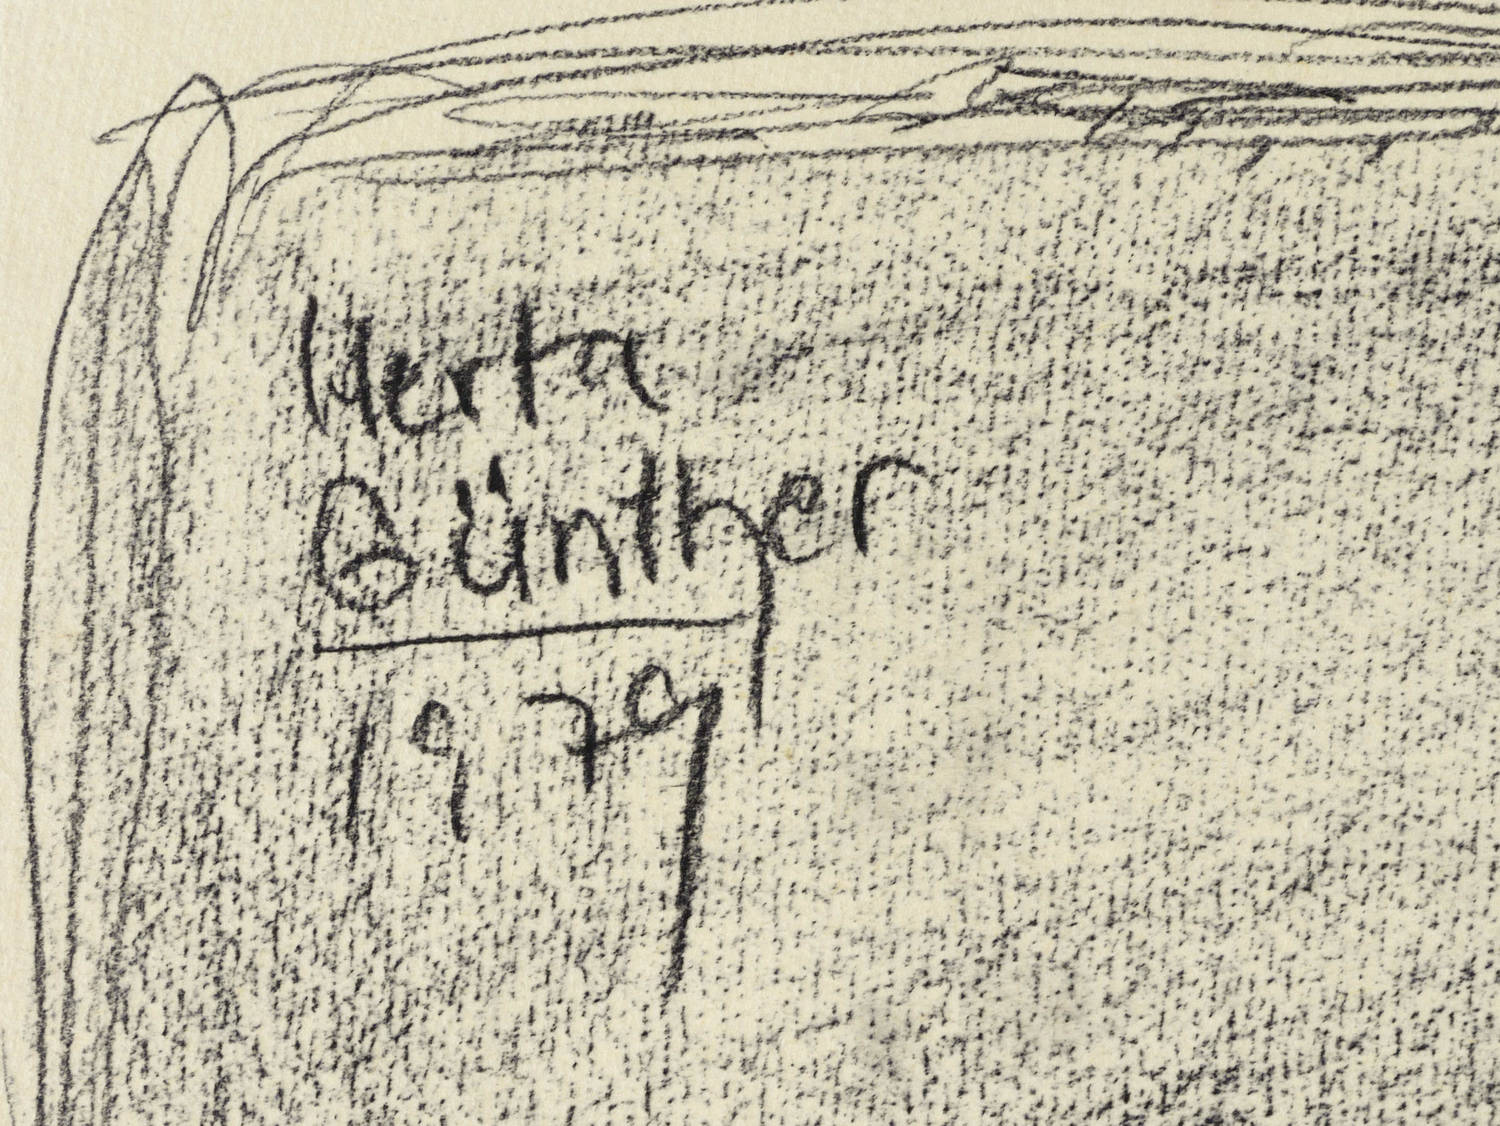 Herta
Günther
1979